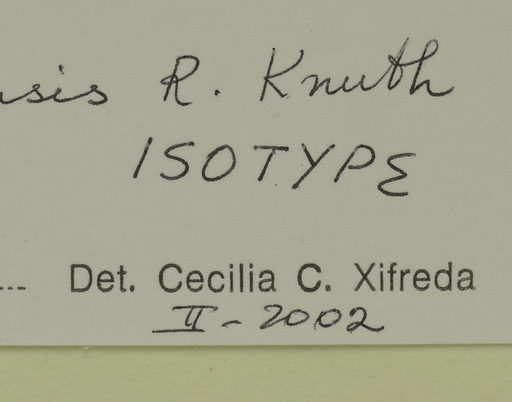 nsis R. Knuth
ISOTYPE
... Det. Cecilia C. Xifreda
II - 2002